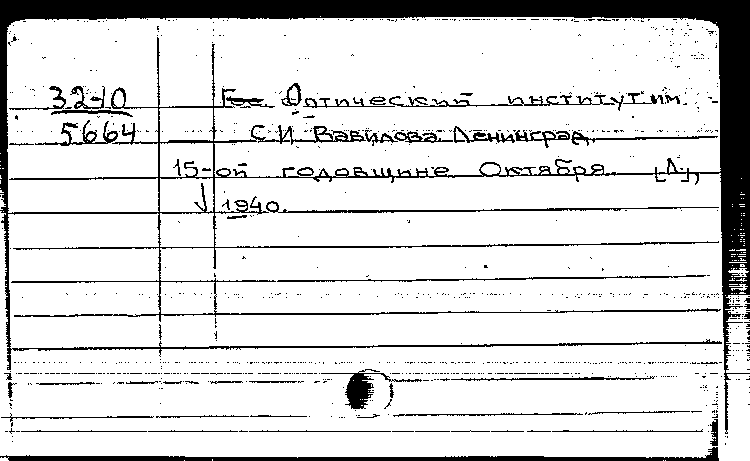 32-10 Гос. Оптический институт им.
5664 С.И. Вавилова Ленинград.
15-ой годовщине Октября. [Л.],
1940.